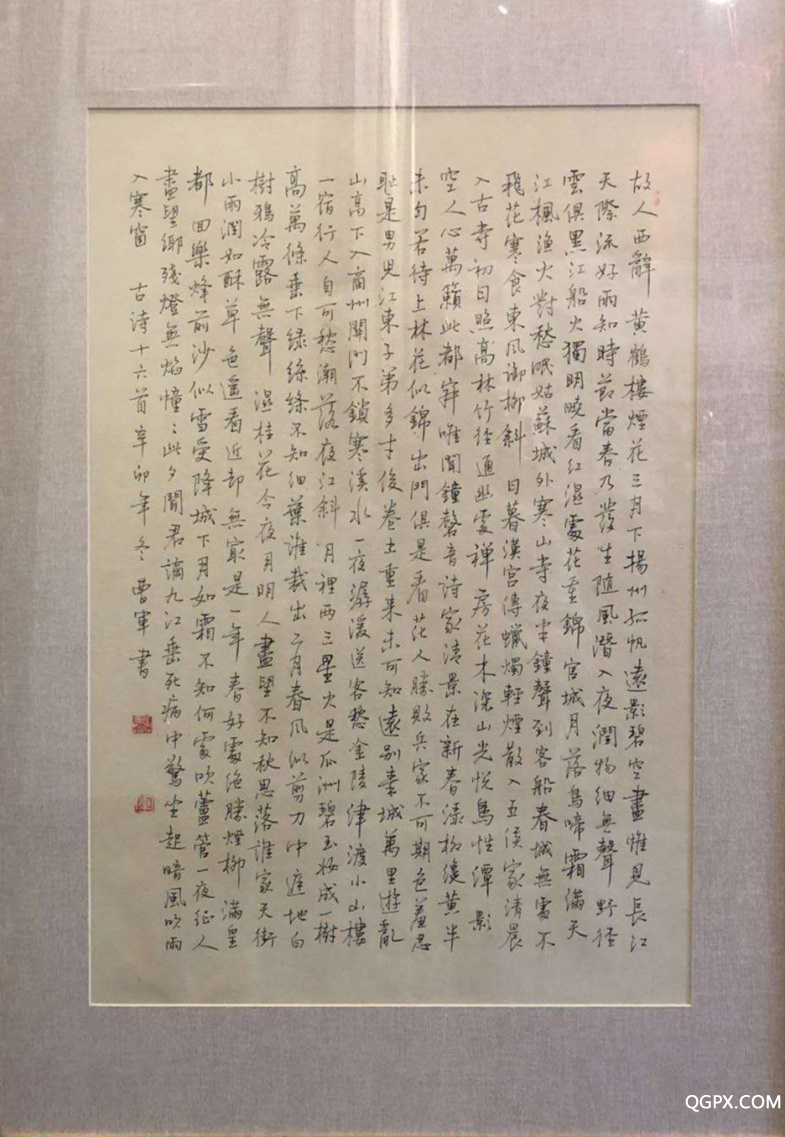 故人西辭黃鶴樓煙花三月下揚州孤帆遠影碧空盡惟見長江
天際流好雨知時節當春乃發生隨風潛入夜潤物細無聲野徑
雲俱黑江船火獨明曉看紅濕處花重錦官城月落烏啼霜滿天
江楓漁火對愁眠姑蘇城外寒山寺夜半鐘聲到客船春城無處不
飛花寒食東風御柳斜日暮漢宮傳蠟燭輕煙散入五侯家清晨
入古寺初日照高林竹徑通幽處禪房花木深山光悅鳥性潭影
空人心萬籟此都寂唯聞鐘磬音詩家清景在新春綠柳纔黃半
未勻若待上林花似錦出門俱是看花人勝敗兵家不可期包羞忍
恥是男兒江東子弟多才俊卷土重來未可知遠別秦城萬里遊亂
山高下入商州關門不鎖寒溪水一夜潺湲送客愁金陵津渡小山樓
一宿行人自可愁潮落夜江斜月裡兩三星火是瓜洲碧玉妝成一樹
高萬條垂下綠絲絛不知細葉誰裁出二月春風似剪刀中庭地白
樹鴉冷露無聲 濕桂花今夜月明人盡望不知秋思落誰家天街
小雨潤如酥草色遙看近却無最是一年春好處絕勝煙柳滿皇
都 回樂烽前沙似雪受降城下月如霜不知何處吹蘆管一夜征人
盡望鄉殘燈無焰幢〻此夕聞君謫九江垂死病中驚坐起暗風吹雨
入寒窗 古诗十六首辛卯年冬曹軍書
QGPX.COM